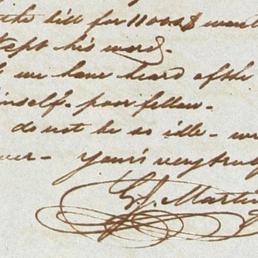 the bill for 11000$ want
kept his word.
t we have heard of the
imself. poor fellow.
do not be so idle - wr
ver - Yours very truly
G.J. Martin